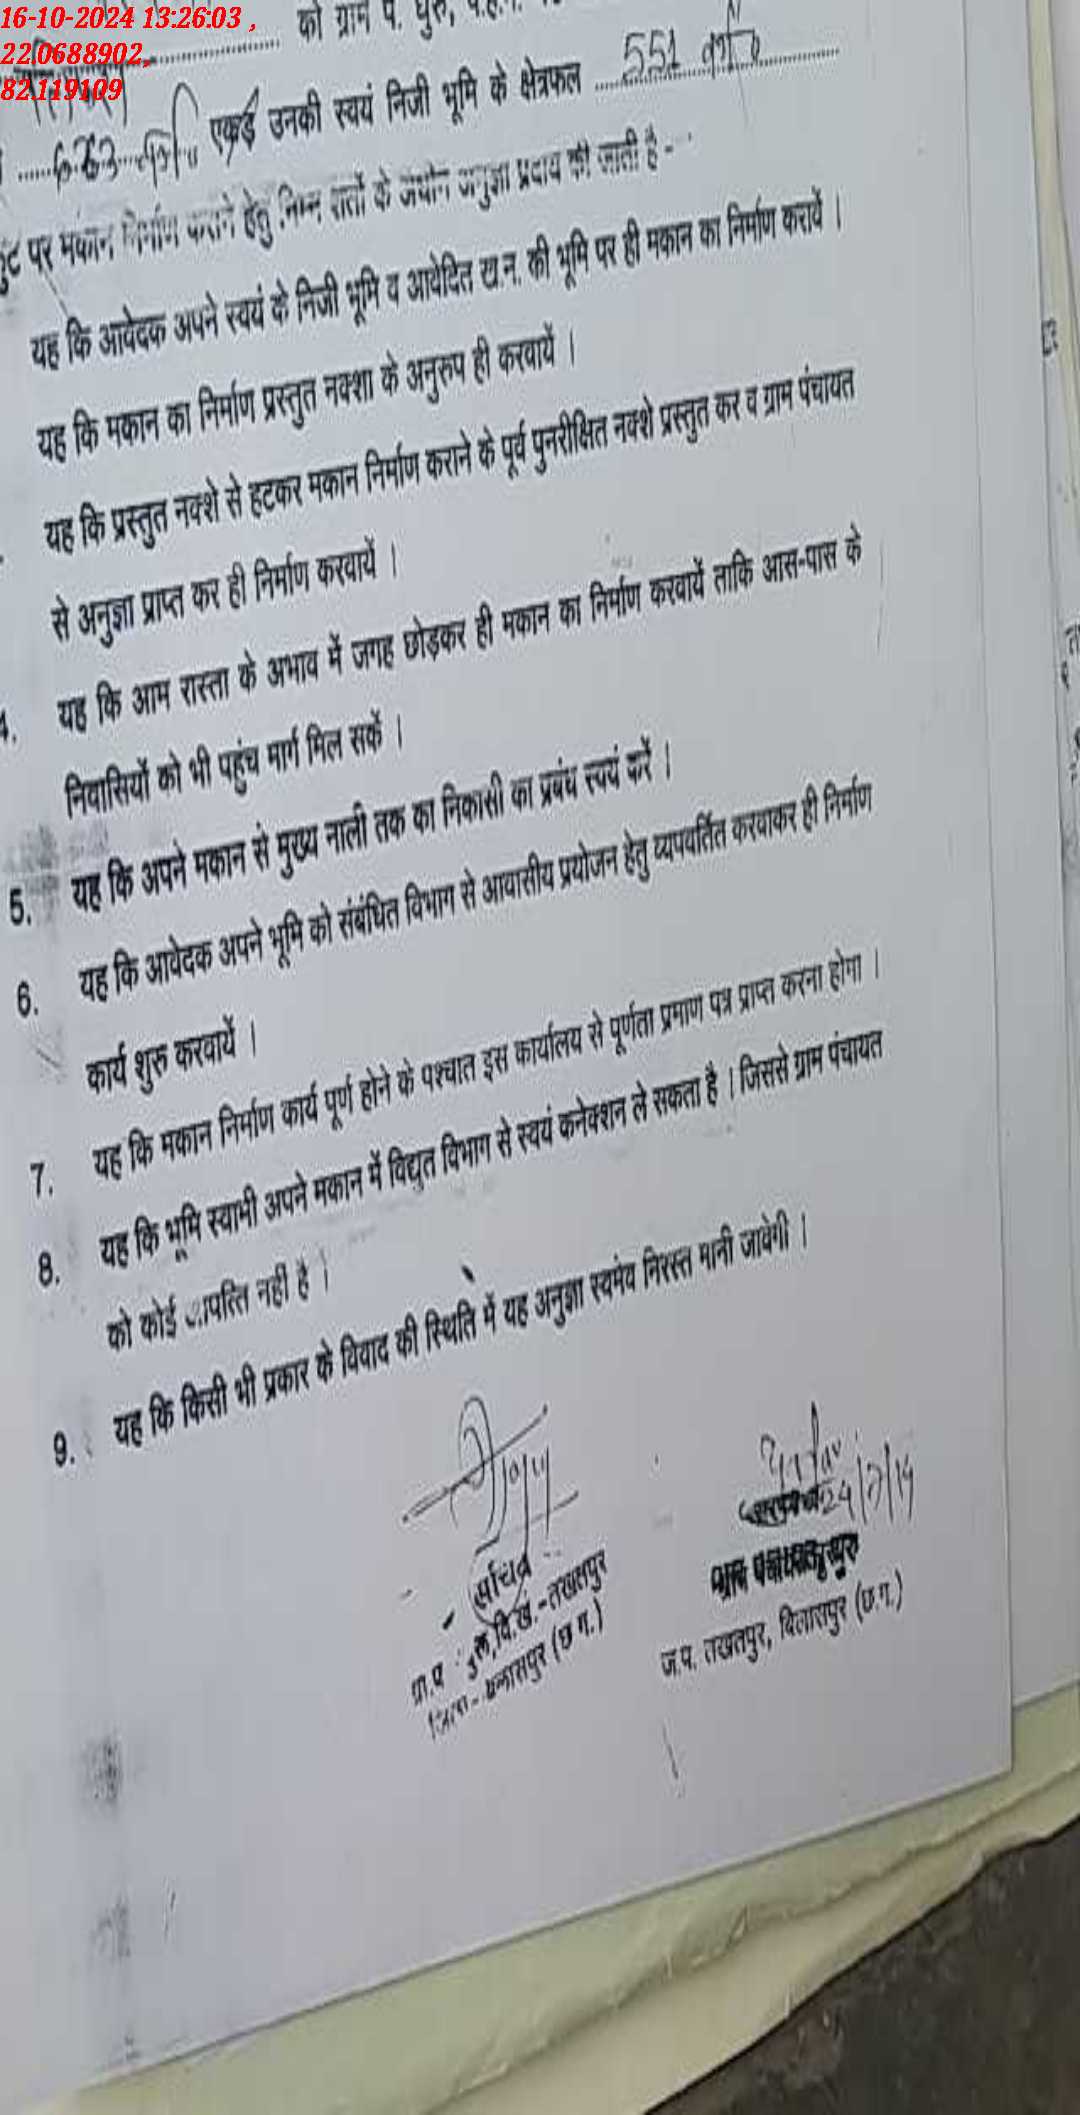 16-10-2024 13:26:03 ,
22.0688902,
82.119109
को ग्राम पं. घुरु,
एकड़ उनकी स्वयं निजी भूमि के क्षेत्रफल 551
पर मकान निर्माण कराने हेतु निम्न शर्तो के अधीन अनुज्ञा प्रदाय की जाती है -
यह कि आवेदक अपने स्वयं के निजी भूमि व आवेदित ख.न. की भूमि पर ही मकान का निर्माण करायें ।
यह कि मकान का निर्माण प्रस्तुत नक्शा के अनुरुप ही करवायें ।
यह कि प्रस्तुत नक्शे से हटकर मकान निर्माण कराने के पूर्व पुनरीक्षित नक्शे प्रस्तुत कर व ग्राम पंचायत
से अनुज्ञा प्राप्त कर ही निर्माण करवायें ।
4. यह कि आम रास्ता के अभाव में जगह छोड़कर ही मकान का निर्माण करवायें ताकि आस-पास के
निवासियों को भी पहुंच मार्ग मिल सकें ।
5. यह कि अपने मकान से मुख्य नाली तक का निकासी का प्रबंध स्वयं करें ।
6. यह कि आवेदक अपने भूमि को संबंधित विभाग से आवासीय प्रयोजन हेतु व्यपवर्तित करवाकर ही निर्माण
कार्य शुरु करवायें ।
7. यह कि मकान निर्माण कार्य पूर्ण होने के पश्चात इस कार्यालय से पूर्णता प्रमाण पत्र प्राप्त करना होगा ।
8. यह कि भूमि स्वामी अपने मकान में विद्युत विभाग से स्वयं कनेक्शन ले सकता है । जिससे ग्राम पंचायत
को कोई आपत्ति नहीं है ।
9. यह कि किसी भी प्रकार के विवाद की स्थिति में यह अनुज्ञा स्वमेव निरस्त मानी जावेगी ।
सचिव
वि.खं.-तखतपुर
जिला- बिलासपुर (छ.ग.)
24/7/14
ग्राम पंचायत घुरु
ज.प. तखतपुर, बिलासपुर (छ.ग.)